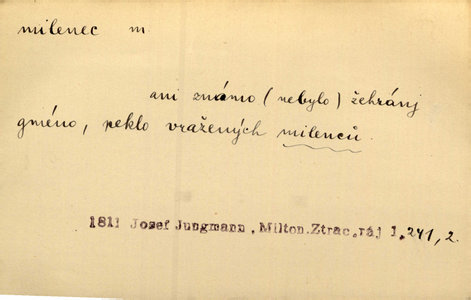 milenec m
ani známo (nebylo) žehránj
gméno, peklo vražených milenců.
1811 Josef Jungmann, Milton.Ztrac.ráj 1,241,2.